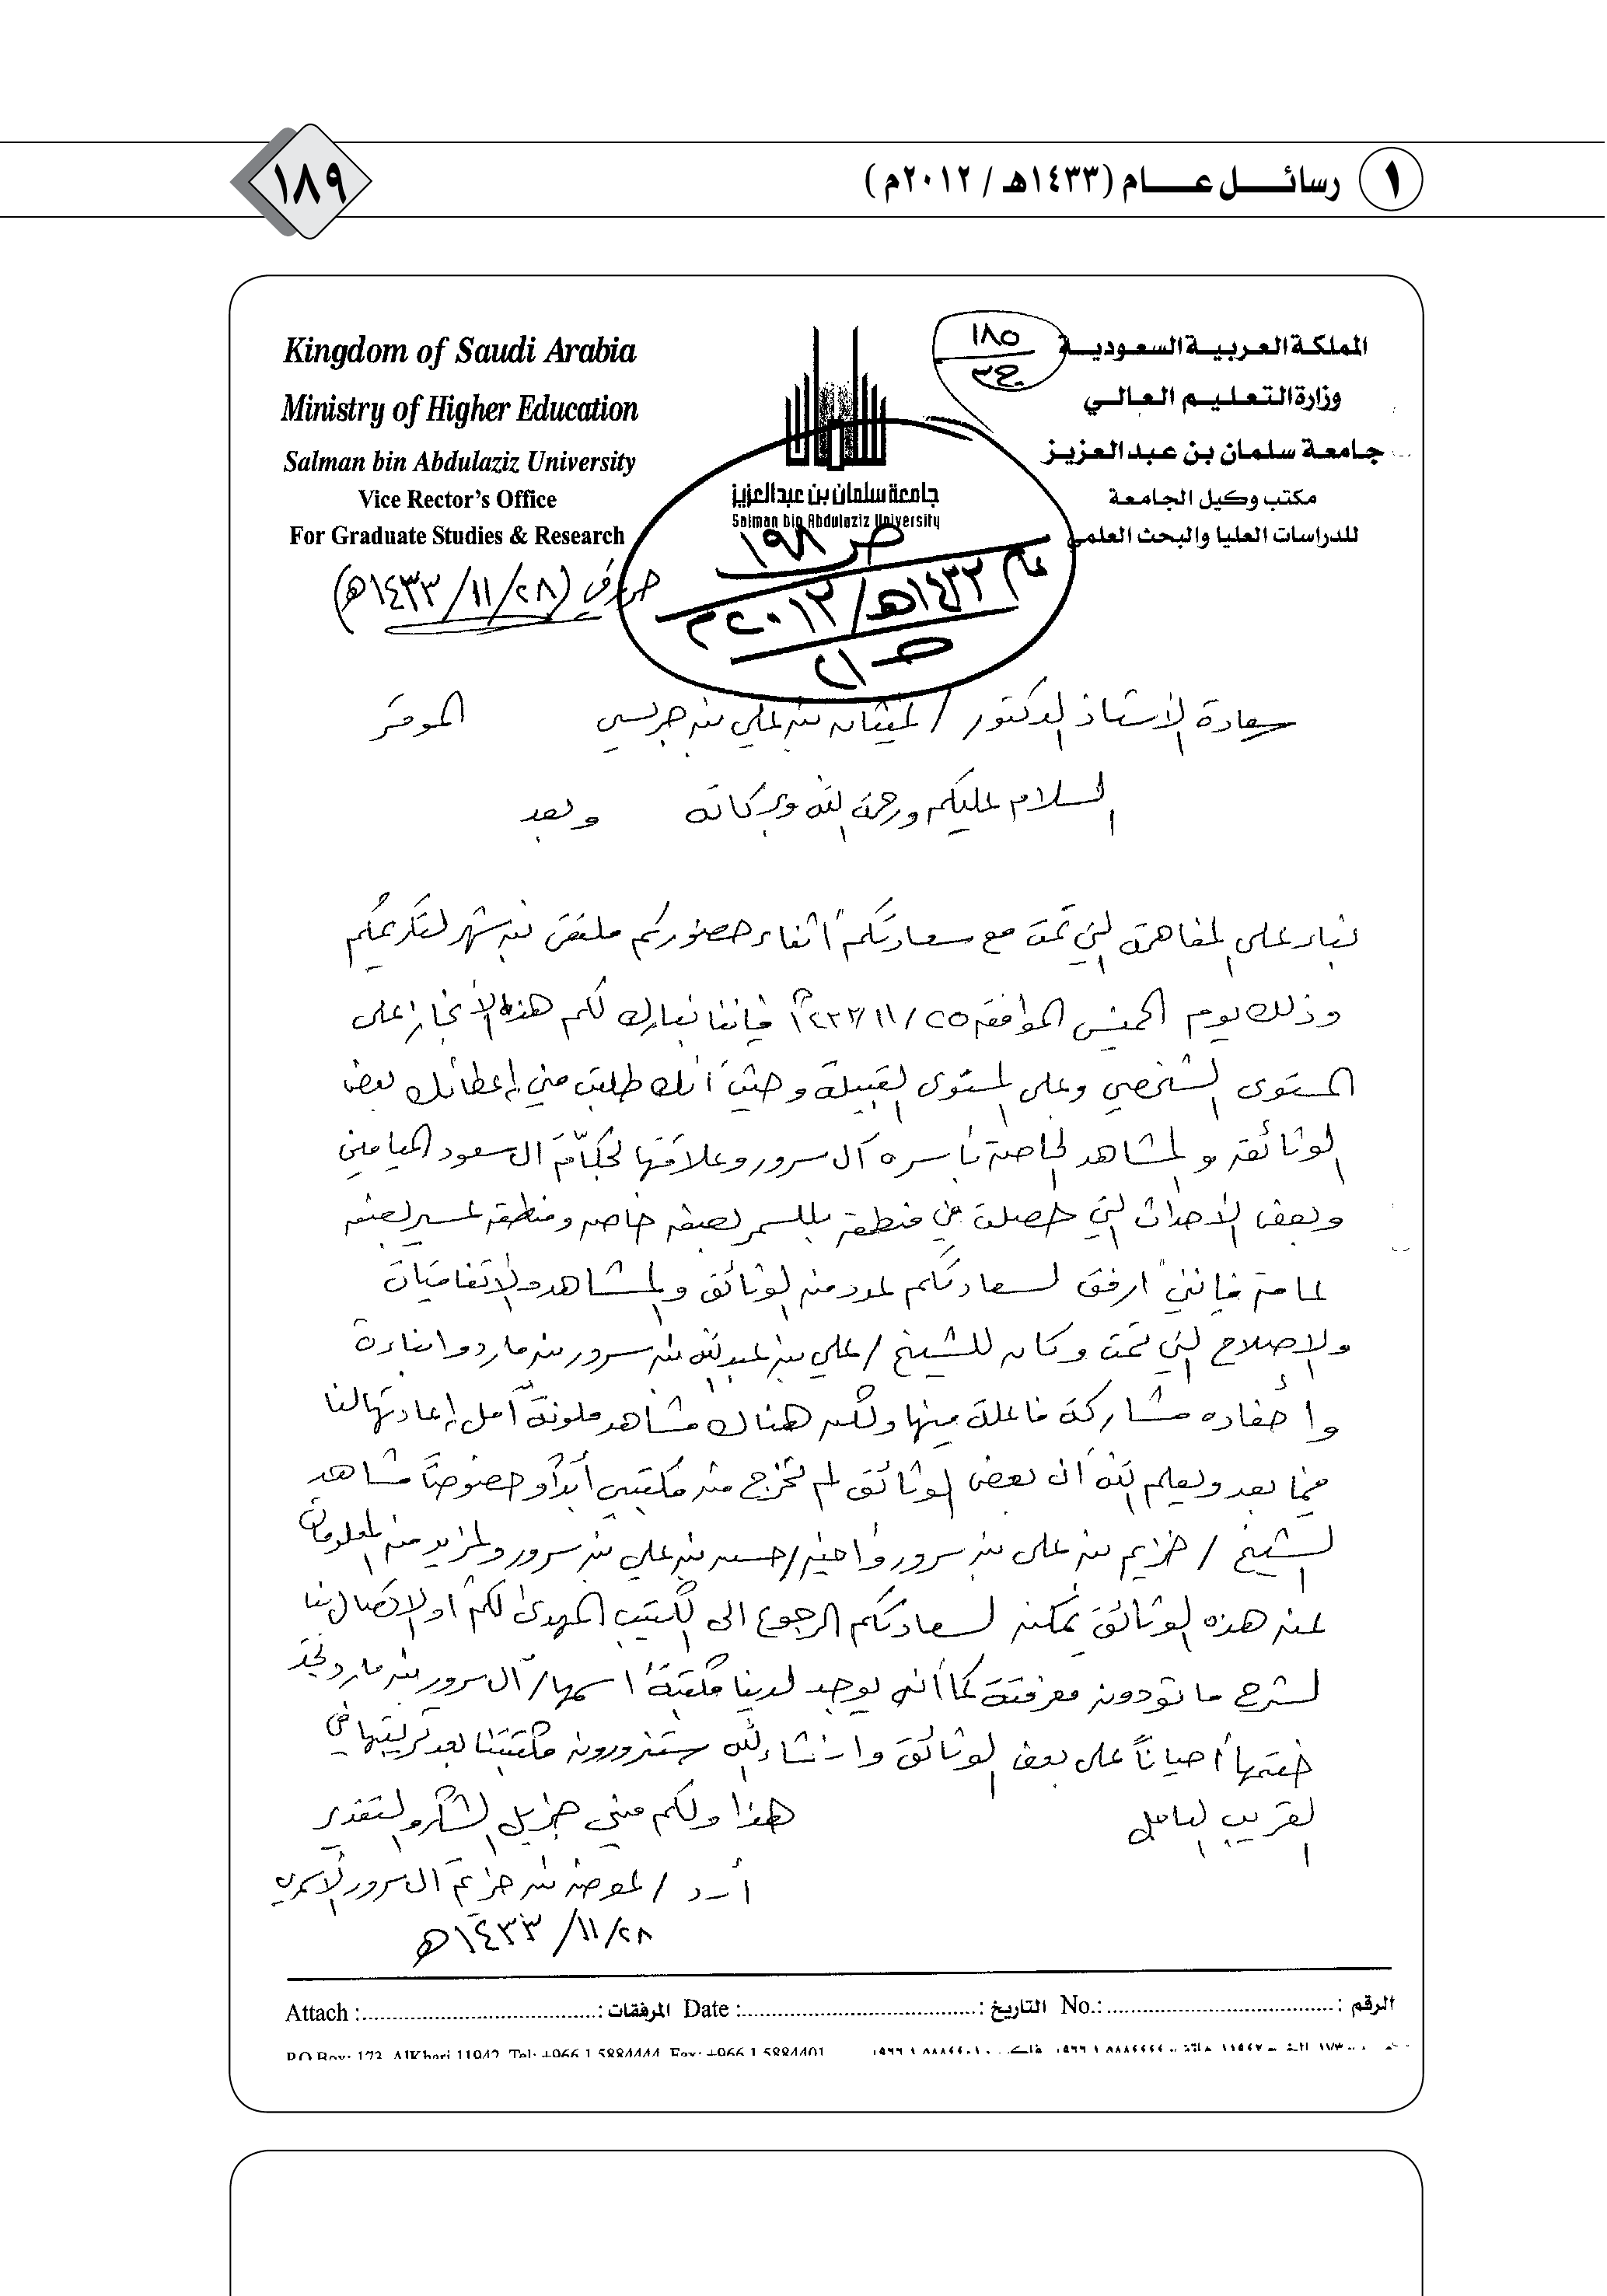 ١ رسائـــل عـــام (١٤٣٣هـ / ٢٠١٢م)
١٨٩
المملكة العربية السعودية
وزارة التعليم العالي
جامعة سلمان بن عبدالعزيز
مكتب وكيل الجامعة
للدراسات العليا والبحث العلمي
١٨٥
جامعة سلمان بن عبدالعزيز
Salman bin Abdulaziz University
Kingdom of Saudi Arabia
Ministry of Higher Education
Salman bin Abdulaziz University
Vice Rector's Office
For Graduate Studies & Research
ص ١٩٨
عام ١٤٣٣هـ/٢٠١٢م
(٢٨/١١/١٤٣٣هـ)
سعادة الأستاذ الدكتور / غيثان بن علي بن جريس الموقر
السلام عليكم ورحمة الله وبركاته وبعد
بناء على المفاهمة التي تمت مع سعادتكم أثناء حضوركم ملتقى بني شهر لتكريمكم
وذلك يوم الخميس الموافق ٢٥/١١/١٤٣٣هـ فإننا نبارك لكم هذا الإنجاز على
المستوى الشخصي وعلى المستوى القبيلة وحيث أنك طلبت مني إعطائك بعض
الوثائق والمشاهد الخاصة بأسره آل سرور وعلاقتها بحكام آل سعود الميامين
وبعض الأحداث التي حصلت في منطقة بللسمر بصفة خاصه ومنطقة عسير بصفة
عامة فإنني ارفق لسعادتكم عدد من الوثائق والمشاهد والاتفاقيات
والإصلاح التي تمت وكان للشيخ /علي بن عبدالله بن سرور بن مارد وابناءة
وأحفاده مشاركة فاعلة فيها ولكن هناك مشاهد ملونة آمل إعادتها لنا
فيما بعد ويعلم الله أن بعض الوثائق لم تخرج من مكتبتي أبداً وخصوصاً مشاهد
الشيخ / حزيم بن علي بن سرور وأخيه/حسن بن علي بن سرور ولمزيد من المعلومات
عن هذه الوثائق يمكن لسعادتكم الرجوع الى الكتيب المهدى لكم أو الاتصال بنا
لشرح ما تودون معرفتة كما أنه يوجد لدينا مكتبة اسمها/آل سرور بن مارد ونجد
ختمها أحياناً على بعض الوثائق وانشاء الله ستزورون مكتبتنا بعد ترتيبها في
القريب العاجل هذا ولكم مني جزيل الشكر والتقدير
أ.د / عوض بن حزيم آل سرور الأسمري
٢٨/١١/١٤٣٣هـ
الرقم : No.: التاريخ : Date : المرفقات : Attach :
P.O.Box: 173 AlKharj 11942 Tel: +966 1 5884444 Fax: +966 1 5884401